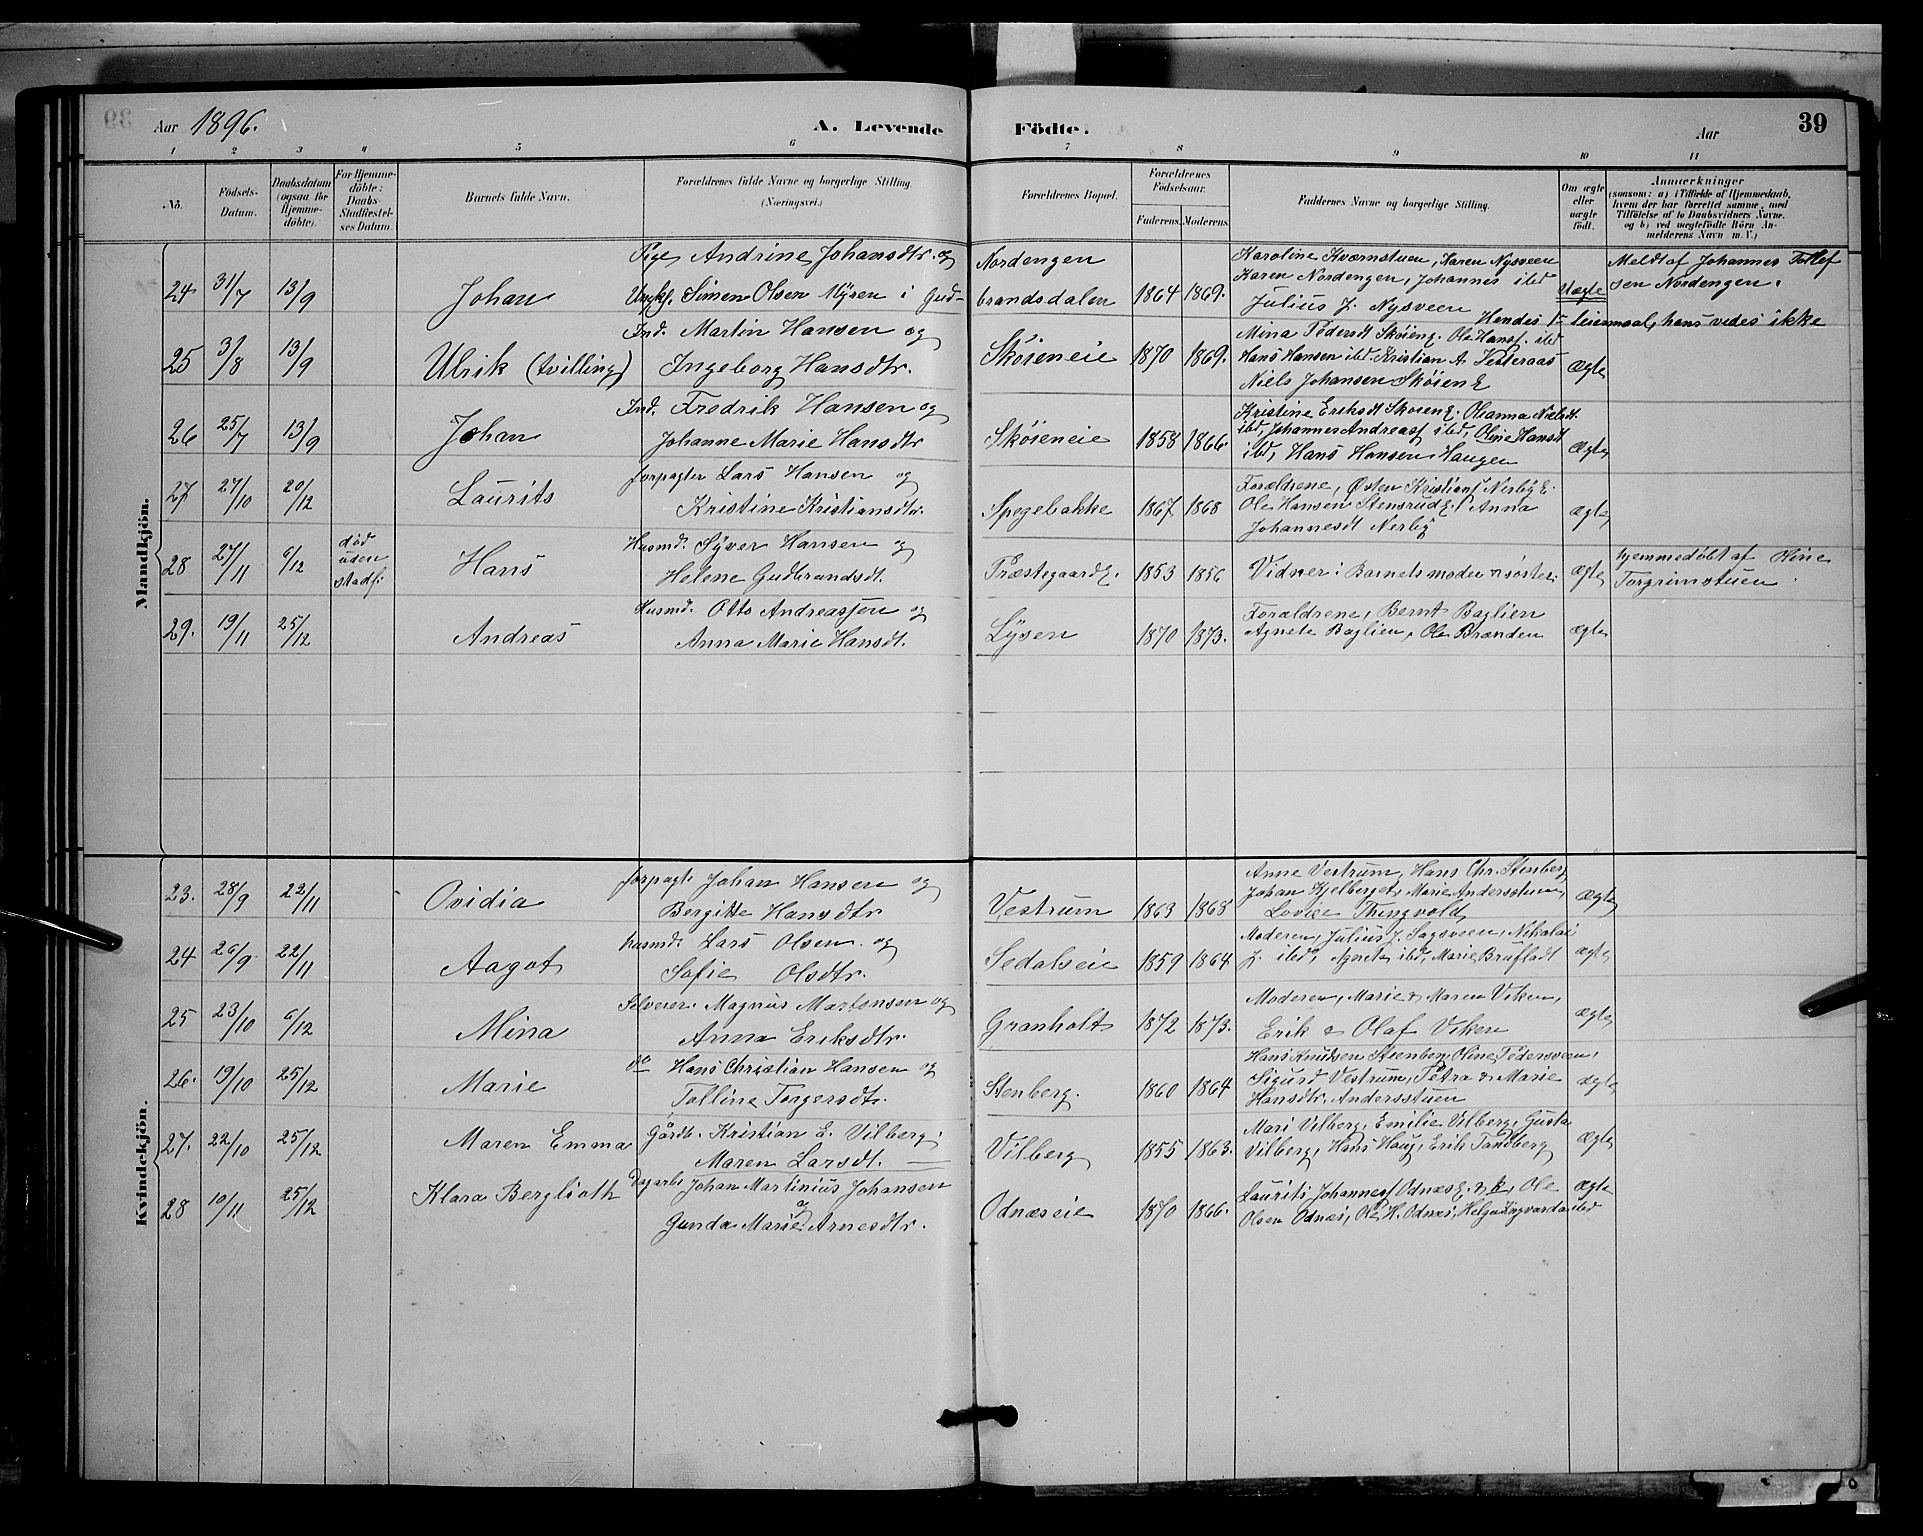 Aar 1896. A. Levende Födte. Aar 39
1 2 3 4 5 6 7 8 9 10 11
No.
Födsels-Datum.
Daabsdatum (ogsaa for Hjemmedöbte).
For Hjemmedöbte: Daabs-Stadfæstelses Datum.
Barnets fulde Navn.
Forældrenes fulde Navne og borgerlige Stilling. (Næringsvei.)
Forældrenes Bopæl.
Forældrenes Födselsaar.
Faderens. Moderens.
Faddernes Navne og borgerlige Stilling.
Om ægte eller uægte födt.
Anmærkninger
(saasom: a) i Tilfælde af Hjemmedaab, hvem der har forrettet samme, med Tilföielse af to Daabsvidners Navne. og b) ved uægtefödte Börn Anmelderens Navn m. V.)
Mandkjön.
Pige Andrine Johansdtr. og Nordengen Karoline Kværnstuen, Karen Nysveen Meldt af Johannes Tollef
24 31/7 13/9 Johan Ungk. Simen Olsen Myren i Gud-brandsdalen 1864 1869. Karen Nordengen, Johannes ibd Uægte sen Nordengen.
Julius J. Nysveen
Hendes 1ste leiermaal, hans vides ikke
Ind. Martin Hansen og Mina Pedersdt Skøieneg. Ole Hansf. ibd
25 3/8 13/9 Ulrik (tvilling) Ingeborg Hansdtr. Skøieneie 1870 1869. Hans Hansen ibd. Kristian A. Vesteraas Ægte
Niels Johansen Skøieng
Ind. Fredrik Hansen og Kristine Eriksdt Skøieng. Oleanna Nielsdt.
26 25/7 13/9 Johan Johanne Marie Hansdtr Skøieneie 1858 1866. ibd, Johannes Andreasf ibd, Oline Hansdt Ægte
ibd, Hans Hansen Haugen
27 27/10 20/12 Laurits forpagter Lars Hansen og Forældrene, Østen Kristiansf Nerbyg.
Kristine Kristiansdtr. Spegebakke 1867 1868 Ole Hansen Stensrudg. Anna ægte
Johannesdt Nerby
28 27/11 6/12 død uden stadf. Hans Husmd. Syver Hansen og
Helene Gudbrandsdt. Præstegaardg. 1853 1856 Vidner: Barnets moder & søster. ægte hjemmedøbt af Oline Torgrimstuen.
29. 19/11 25/12 Andreas Husmd. Otto Andreassen og Forældrene, Bernt Baglien
Anna Marie Hansdt. Lysen 1870 1873. Agnete Baglien, Ole Brænden ægte
Kvindekjön.
23. 28/9 22/11 Ovidia forpagt. Johan Hansen og Anne Vestrum, Hans Chr. Stenberg
Bergitte Hansdtr Vestrum 1863 1865 Johan Kjelberget, Marie Andersstuen, Ægte
Lovise Thingvold
24 26/9 22/11 Aagot husmd. Lars Olsen og Moderen, Julius J. Sagsveen, Nikolai
Sofie Olsdtr. Sedalseie 1859 1864 J. ibd, Agneta ibd, Marie Brufladt ægte
25 23/10 6/12 Mina Selveier Magnus Martinsen og Moderen, Marie & Maren Viken,
Anna Eriksdtr. Granholt 1872 1873. Erik & Olaf Viken ægte
26. 19/10 25/12 Marie do Hans Christian Hansen og Hans Knudsen Stenberg, Oline Pedersveen,
Tolline Torgersdtr. Stenberg. 1860 1864 Sigurd Vestrum, Petra & Marie ægte
Hansdtr. Andersstuen
27. 22/10 25/12 Maren Emma Gårdb. Kristian E. Vilberg, Mari Vilberg, Emilie Vilberg, Gusta
Maren Larsdt. Vilberg 1855 1863. Vilberg, Hans Haug, Erik Tandberg Ægte
28 10/11 25/12 Klara Berglioth Dagarb. Johan Martinius Johansen Laurits Johannesf Odnæsg. & k., Ole Ægte
og Gunda Marie Arnesdtr. Odnæseie 1870 1866. Olsen Odnæs, Ole H. Odnæs, Helga Ingvarda ibd